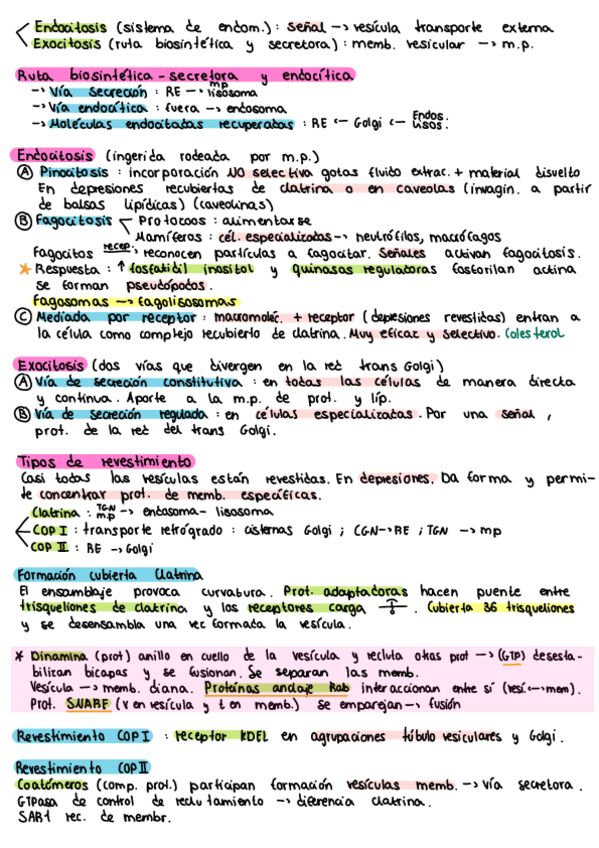 Endocitosis (sistema de endom.) : señal → vesícula transporte externa
Exocitosis (ruta biosintética y secretora) : memb. vesicular → m.p.
Ruta biosintética - secretora y endocítica
→ Vía secreción : RE → mp lisosoma
→ Vía endocítica : fuera → endosoma
→ Moléculas endocitadas recuperadas : RE ← Golgi ← Endos. lisos.
Endocitosis (ingerida rodeada por m.p.)
A Pinocitosis : incorporación NO selectiva gotas fluido extrac. + material disuelto
En depresiones recubiertas de clatrina o en caveolas (invagin. a partir
de balsas lipídicas) (caveolinas)
B Fagocitosis Protozoos : alimentarse
Mamíferos : cél. especializadas → neutrófilos, macrófagos
Fagocitos recep. reconocen partículas a fagocitar. Señales activan fagocitosis.
* Respuesta : ↑ fosfatidil inositol y quinasas reguladoras fosforilan actina
se forman pseudópodos.
Fagosomas → fagolisosomas
C Mediada por receptor : macromoléc. + receptor (depresiones revestidas) entran a
la célula como complejo recubierto de clatrina. Muy eficaz y selectivo. Colesterol
Exocitosis (dos vías que divergen en la red trans Golgi)
A Vía de secreción constitutiva : en todas las células de manera directa
y continua. Aporte a la m.p. de prot. y líp.
B Vía de secreción regulada : en células especializadas. Por una señal ,
prot. de la red del trans Golgi.
Tipos de revestimiento
Casi todas las vesículas están revestidas. En depresiones. Da forma y permi-
te concentrar prot. de memb. específicas.
Clatrina : TGN m.p → endosoma - lisosoma
COP I : transporte retrógrado : cisternas Golgi ; CGN → RE ; TGN → mp
COP II : RE → Golgi
Formación cubierta Clatrina
El ensamblaje provoca curvatura. Prot. adaptadoras hacen puente entre
trisqueliones de clatrina y los receptores carga . Cubierta 36 trisqueliones
y se desensambla una vez formada la vesícula.
* Dinamina (prot) anillo en cuello de la vesícula y recluta otras prot → (GTP) desesta-
bilizan bicapas y se fusionan. Se separan las memb.
Vesícula → memb. diana. Proteínas anclaje Rab interaccionan entre sí (vesí ↔ mem).
Prot. SNARE (v en vesícula y t en memb.) se emparejan → fusión
Revestimiento COP I : receptor KDEL en agrupaciones túbulo vesiculares y Golgi.
Revestimiento COP II
Coatómeros (comp. prot.) participan formación vesículas memb. → vía secretora.
GTPasa de control de reclutamiento → diferencia clatrina.
SAR1 rec. de membr.